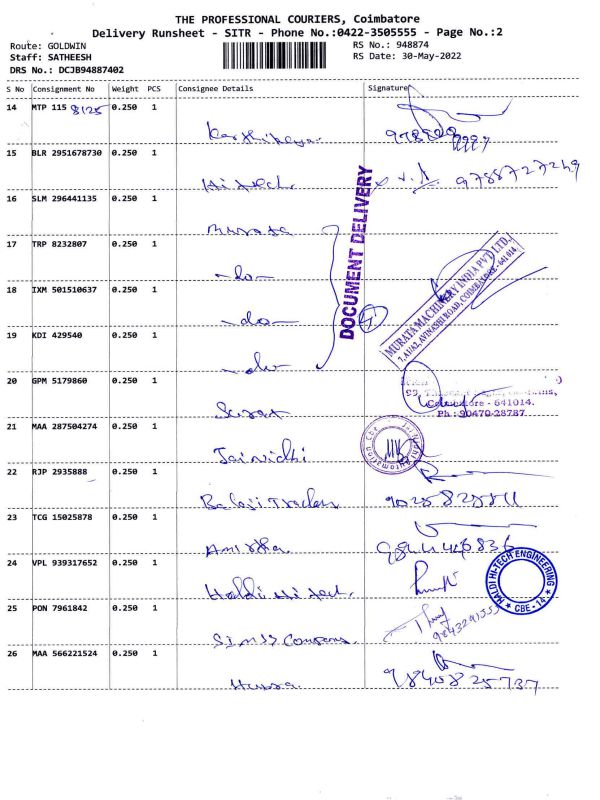 THE PROFESSIONAL COURIERS, Coimbatore
Delivery Runsheet - SITR - Phone No.:0422-3505555 - Page No.:2
Route: GOLDWIN
RS No.: 948874
Staff: SATHEESH
RS Date: 30-May-2022
DRS No.: DCJB94887402
S No Consignment No Weight PCS Consignee Details Signature
14 MTP 115 8125 0.250 1
15 BLR 2951678730 0.250 1
Hi tech 9788727249
16 SLM 296441135 0.250 1
Murata
17 TRP 8232807 0.250 1
-do-
18 IXM 501510637 0.250 1
-do-
19 KDI 429540 0.250 1
-do-
DOCUMENT DELIVERY
4
MURATA MACHINERY INDIA PVT LTD.,
7, A1/A2, AVINASHI ROAD, COIMBATORE - 641 014
20 GPM 5179860 0.250 1
Coimbatore - 641014.
Ph : 90470-28787
21 MAA 287504274 0.250 1
Jai nidhi
Jai nidhi Automation Cbe
22 RJP 2935888 0.250 1
Balaji Traders
23 TCG 15025878 0.250 1
24 VPL 939317652 0.250 1
Haldi Hi tech.
HALDI HI-TECH ENGINEERING
CBE - 14
25 PON 7961842 0.250 1
Company 9843291353
26 MAA 566221524 0.250 1
98408 25737